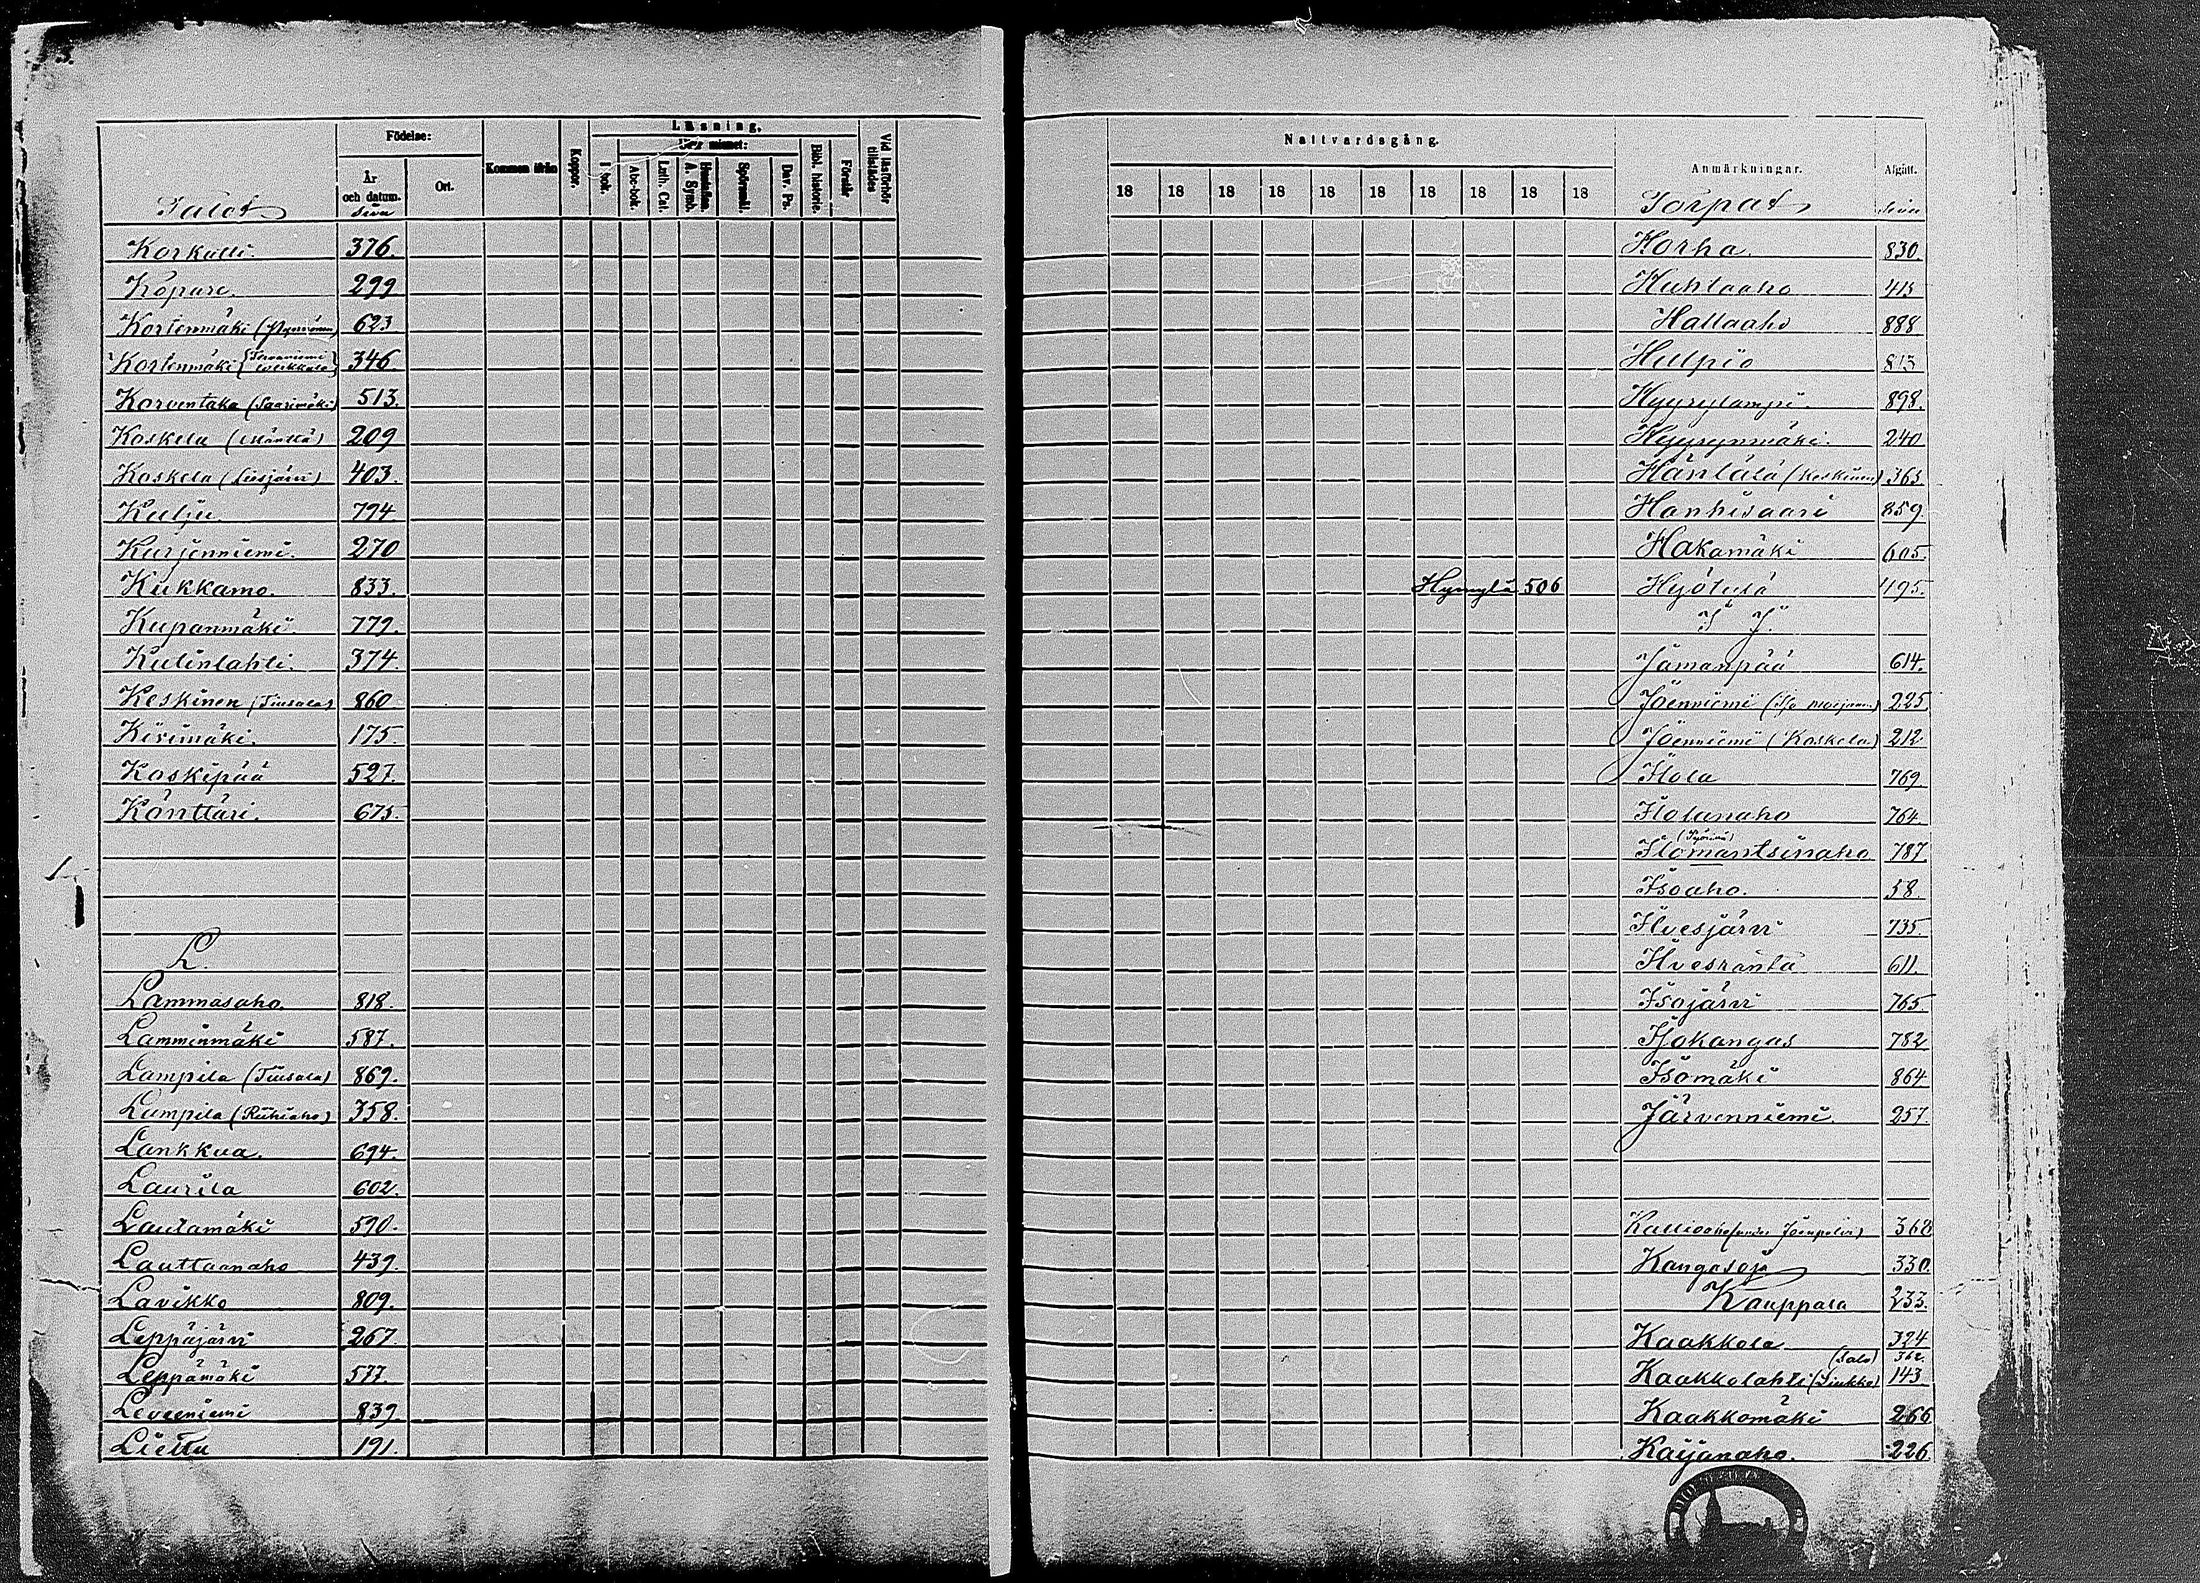 Födelse:
Läsning.
Utur minnet:
År och datum.
Ort.
Kommen ifrån
Koppor.
I bok.
Abc-bok.
Luth. Cat.
Hustaflan. A. Symb.
Spörsmål.
Dav. Ps.
Bibl. historie.
Förstår
Vid läsförhör tillstädes
Talot Sivu
Korkatti. 376.
Köpare. 299
Kortenmäki (Pynnönen) 623
Kortenmäki 346.
Korventaka (Saarimäki) 513.
Koskela (Mänttä) 209
Koskela (Liesjärvi) 403.
Kulju 794
Kurjenniemi. 270
Kukkamo. 833.
Kupanmäki. 779.
Kutinlahti. 374.
Keskinen (Tiusala) 860
Kirimäki. 175.
Koskipää 527.
Könttäri. 675.
L.
Lammasaho. 818.
Lamminmäki 587.
Lampila (Tiusala) 869.
Lampila (Riihiaho) 358.
Lankkua. 694.
Laurila 602.
Lautamäki 590.
Lauttaanaho 439.
Lavikko 809.
Leppäjärvi 267.
Leppämäki 577.
Leveeniemi 839
Lietta 191.
Nattvardsgång.
18 18 18 18 18 18 18 18 18 18
Anmärkningar.
Afgått.
Torpat Sivu
Horha. 830.
Huhtaaho 415
Hallaaho 888
Hulpio 813
Hyyrylampi. 898.
Hyyrynmäki. 240
Häntälä (Keskinen) 363
Hanhisaari 859.
Hakamäki 605.
Hymylä 506 Hyötylä 495.
I J.
Jämänpää 614.
Joenniemi 225
Joenniemi (Koskela) 212.
Ilola 769.
Ilolanaho 764.
Ilomantsinaho 787.
Isoaho. 58.
Ilvesjärvi 735.
Ilvesranta 611.
Isojärvi 765
Isokangas 782
Isomäki 864
Järvenniemi. 257.
Kallioaho 368
Kangasoja 330.
Kauppala 233.
Kaakkola 324
(Salo) 362.
Kaakkolahti (Liukko) 143
Kaakkomäki 266
Kaijanaho. 226.